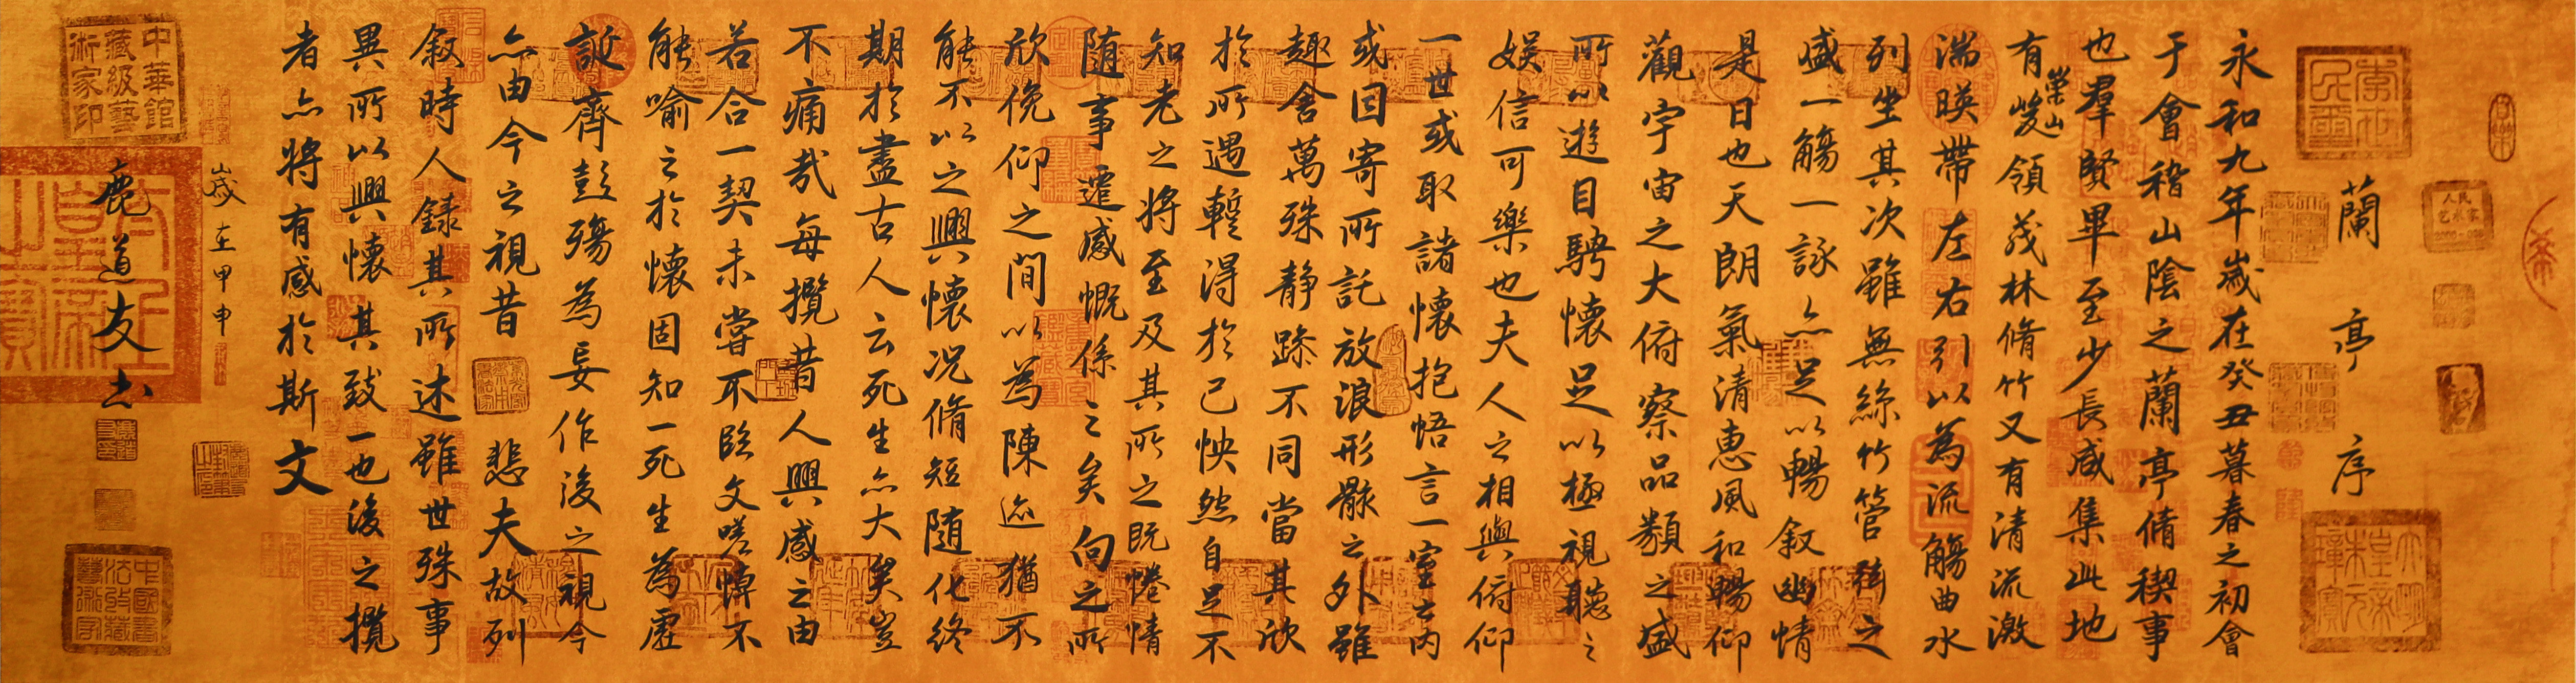 蘭亭序
永和九年歲在癸丑暮春之初會
于會稽山陰之蘭亭脩稧事
也羣賢畢至少長咸集此地
有崇山峻領茂林脩竹又有清流激
湍暎帶左右引以為流觴曲水
列坐其次雖無絲竹管弦之
盛一觴一詠亦足以暢叙幽情
是日也天朗氣清惠風和暢仰
觀宇宙之大俯察品類之盛
所以遊目騁懷足以極視聽之
娛信可樂也夫人之相與俯仰
一世或取諸懷抱悟言一室之內
或因寄所託放浪形骸之外雖
趣舍萬殊靜躁不同當其欣
於所遇暫得於己怏然自足不
知老之將至及其所之既惓情
隨事遷感慨係之矣向之所
欣俛仰之間以為陳迹猶不
能不以之興懷況脩短隨化終
期於盡古人云死生亦大矣豈
不痛哉每攬昔人興感之由
若合一契未嘗不臨文嗟悼不
能喻之於懷固知一死生為虛
誕齊彭殤為妄作後之視今
亦由今之視昔 悲夫故列
叙時人錄其所述雖世殊事
異所以興懷其致一也後之攬
者亦將有感於斯文
歲在甲申
鹿道友書
人民
艺术家
中華館
藏級藝
術家印